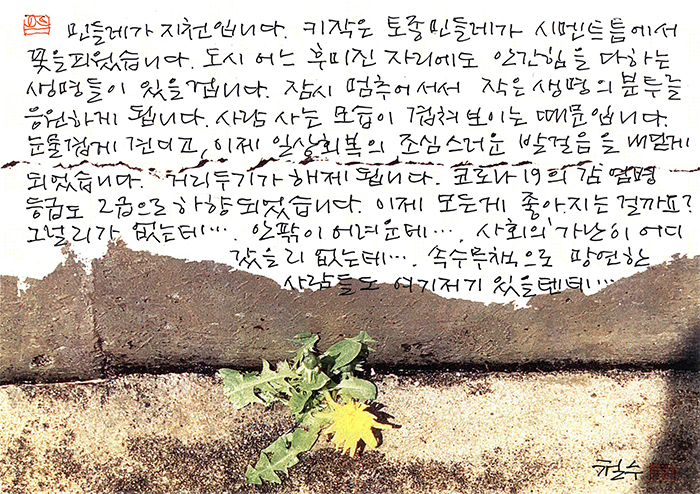 민들레가 지천입니다. 키작은 토종민들레가 시멘트틈에서
꽃을피웠습니다. 도시 어느 후미진 자리에도 안간힘을 다하는
생명들이 있을겁니다. 잠시 멈추어서서 작은 생명의 분투를
응원하게 됩니다. 사람 사는 모습이 겹쳐보이는 때문입니다.
눈물겹게 견디고, 이제 일상회복의 조심스러운 발걸음을 내딛게
되었습니다. 거리두기가 해제 됩니다. 코로나19의 감염병
등급도 2급으로 하향 되었습니다. 이제 모든게 좋아지는 걸까요?
그럴리가 없는데…. 안팎이 어려운데…. 사회의 가난이 어디
갔을리 없는데…. 속수무책으로 망연한
사람들도 여기저기 있을텐데…
철수